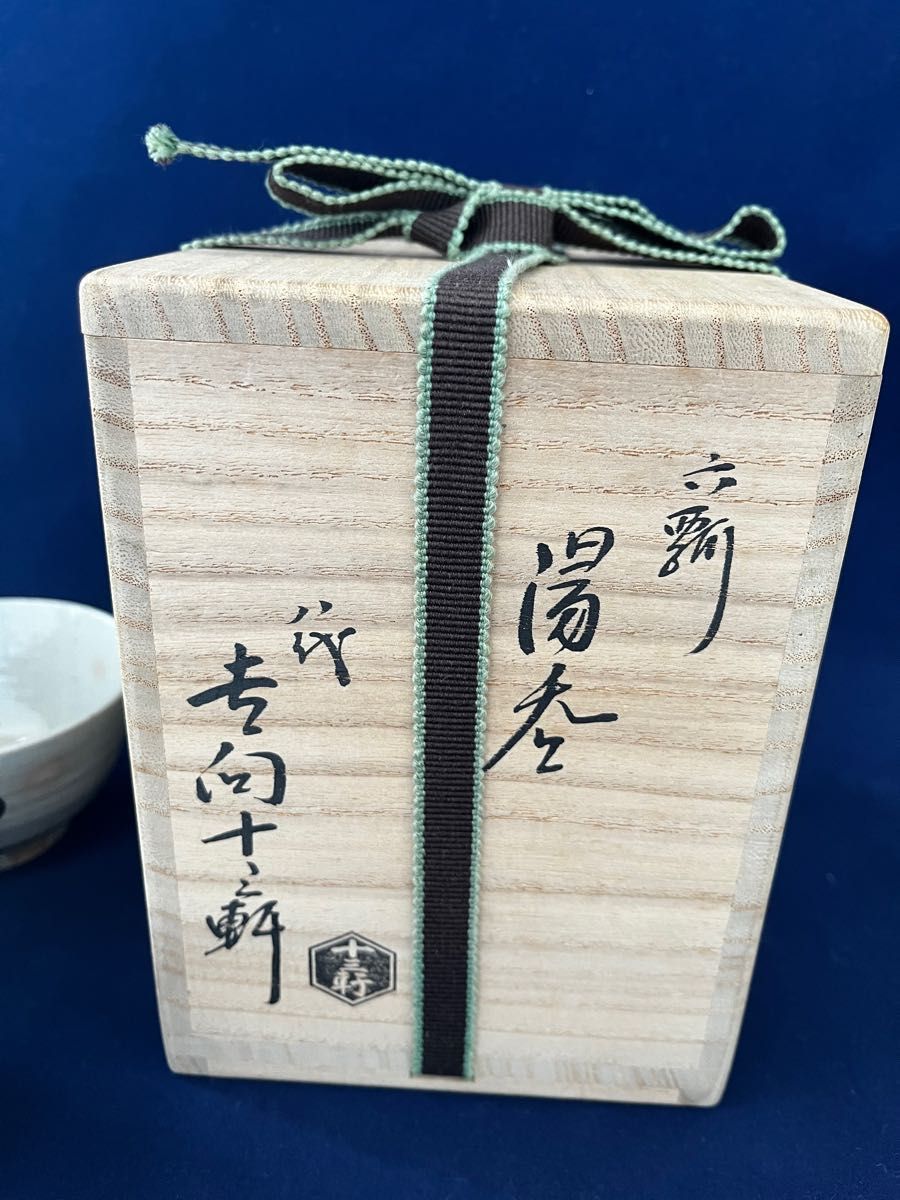 六瓢
湯呑
八代
吉向十三軒
十三軒